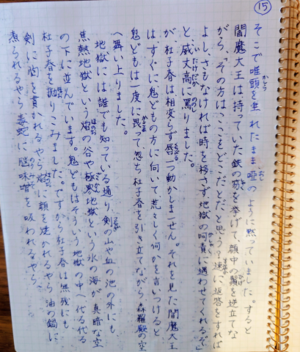 ⑮
そこで唯頭を垂れたまま唖のように黙っていました。すると
閻魔大王は持っていた鉄の笏を挙げて顔中の鬚を逆立てな
がら、「その方はここをどこだと思う？速に返答をすれば
よし、さもなければ時を移さず地獄の呵責に遇わせてくれるぞ」
と威丈高に罵りました。
が杜子春は相変らず唇一つ動かしません。それを見た閻魔大王
はすぐに鬼どもの方に向いて荒々しく何か言いつけると
鬼どもは一度に畏って忽ち杜子春を引き立てながら森羅殿の空
へ舞い上りました。
地獄には誰でも知っている通り剣の山や血の池の外にも
焦熱地獄という焔の谷や極寒地獄という氷の海が真暗な空
の下に並んでいます。鬼どもはそういう地獄の中へ代る代る
杜子春を抛りこみました。ですから杜子春は無残にも
剣に胸を貫かれるやら焔に顔を焼かれるやら油の鍋に
煮られるやら毒蛇に脳味噌を吸われるやら、